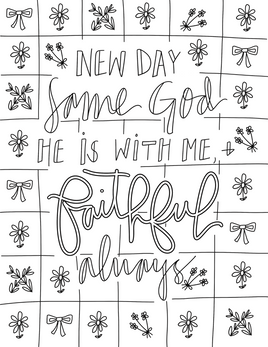 NEW DAY
Same God
HE iS WiTH ME, +
faithful
always